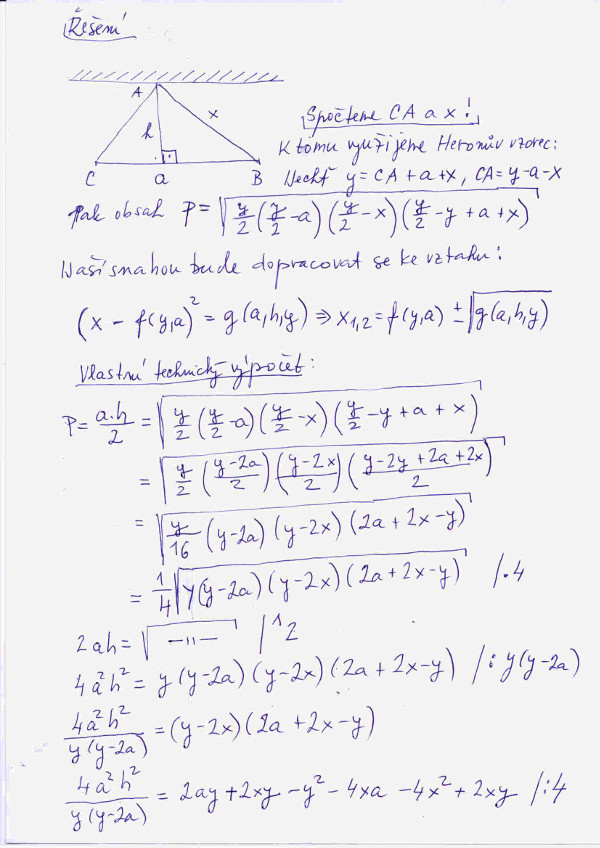 Řešení
A
h
x
C
a
B
Spočteme CA a x!
K tomu využijeme Heronův vzorec:
Nechť y = CA + a + x, CA = y - a - x
Pak obsah P = √(y/2 (y/2 - a) (y/2 - x) (y/2 - y + a + x))
Naší snahou bude dopracovat se ke vztahu:
(x - f(y,a)² = g(a,h,y) ⇒ x₁,₂ = f(y,a) ± √g(a,h,y)
Vlastní technický výpočet:
P = a.h/2 = √(y/2 (y/2 - a) (y/2 - x) (y/2 - y + a + x))
= √(y/2 ((y-2a)/2) ((y-2x)/2) ((y-2y+2a+2x)/2))
= √(y/16 (y-2a) (y-2x) (2a+2x-y))
= 1/4 √(y(y-2a) (y-2x) (2a+2x-y)) /.4
2ah = √(-〃-) /^2
4a²h² = y(y-2a) (y-2x) (2a+2x-y) /: y(y-2a)
4a²h²/(y(y-2a)) = (y-2x) (2a+2x-y)
4a²h²/(y(y-2a)) = 2ay + 2xy - y² - 4xa - 4x² + 2xy /:4